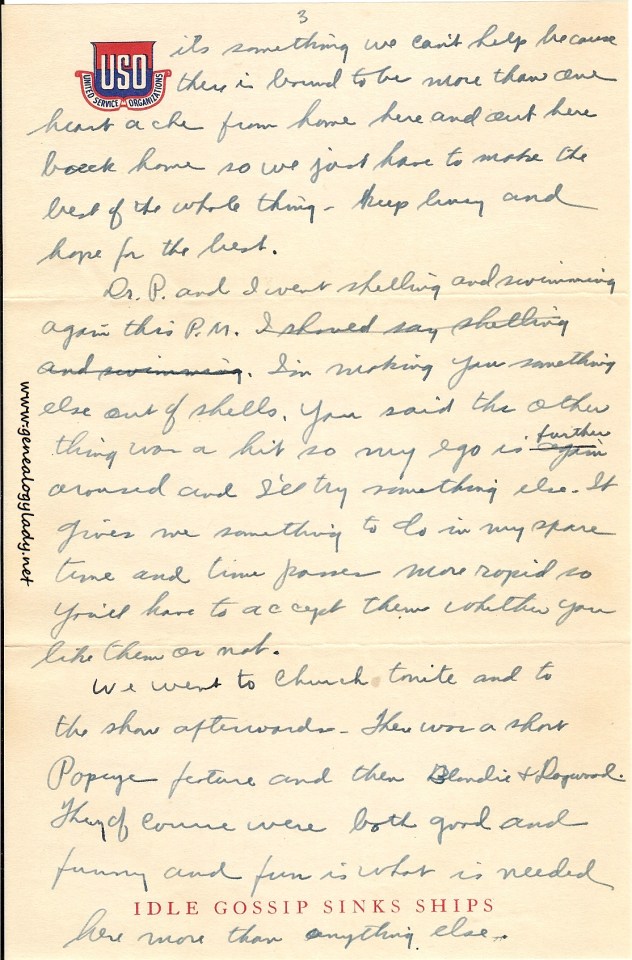 3
USO
UNITED SERVICE ORGANIZATIONS
its something we can't help because
there is bound to be more than one
heart ache from home here and out here
back home so we just have to make the
best of the whole thing - Keep living and
hope for the best.
Dr. P. and I went shelling and swimming
again this P.M. I should say shelling
and swimming. I'm making you something
else out of shells. You said the other
thing was a hit so my ego is further again
aroused and I'll try something else. It
gives me something to do in my spare
time and time passes more rapid so
you'll have to accept them whether you
like them or not.
We went to Church tonite and to
the show afterwards - There was a short
Popeye feature and then Blondie & Dagwood.
They of course were both good and
funny and fun is what is needed
IDLE GOSSIP SINKS SHIPS
here more than anything else.
www.genealogylady.net